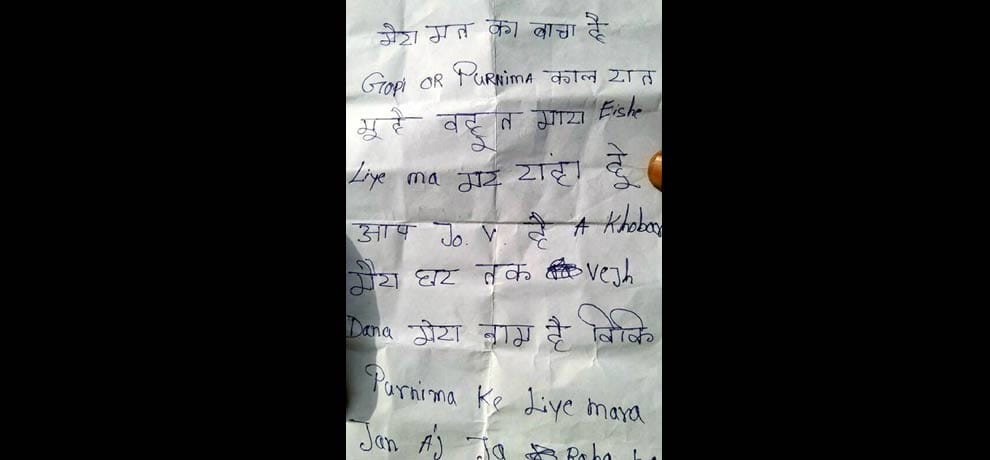 मेरा मत का बाचा है
Gopi OR PURNimA काल रात
मू है बहूत मारा Eishe
Liye ma मर रांहा हूे
आप Jo. V. है A Khobar
मैरा घर तक Vejh
Dana मेरा नाम है विकि
Purnima Ke Liye mara
Jan Aj Ja Raha ha